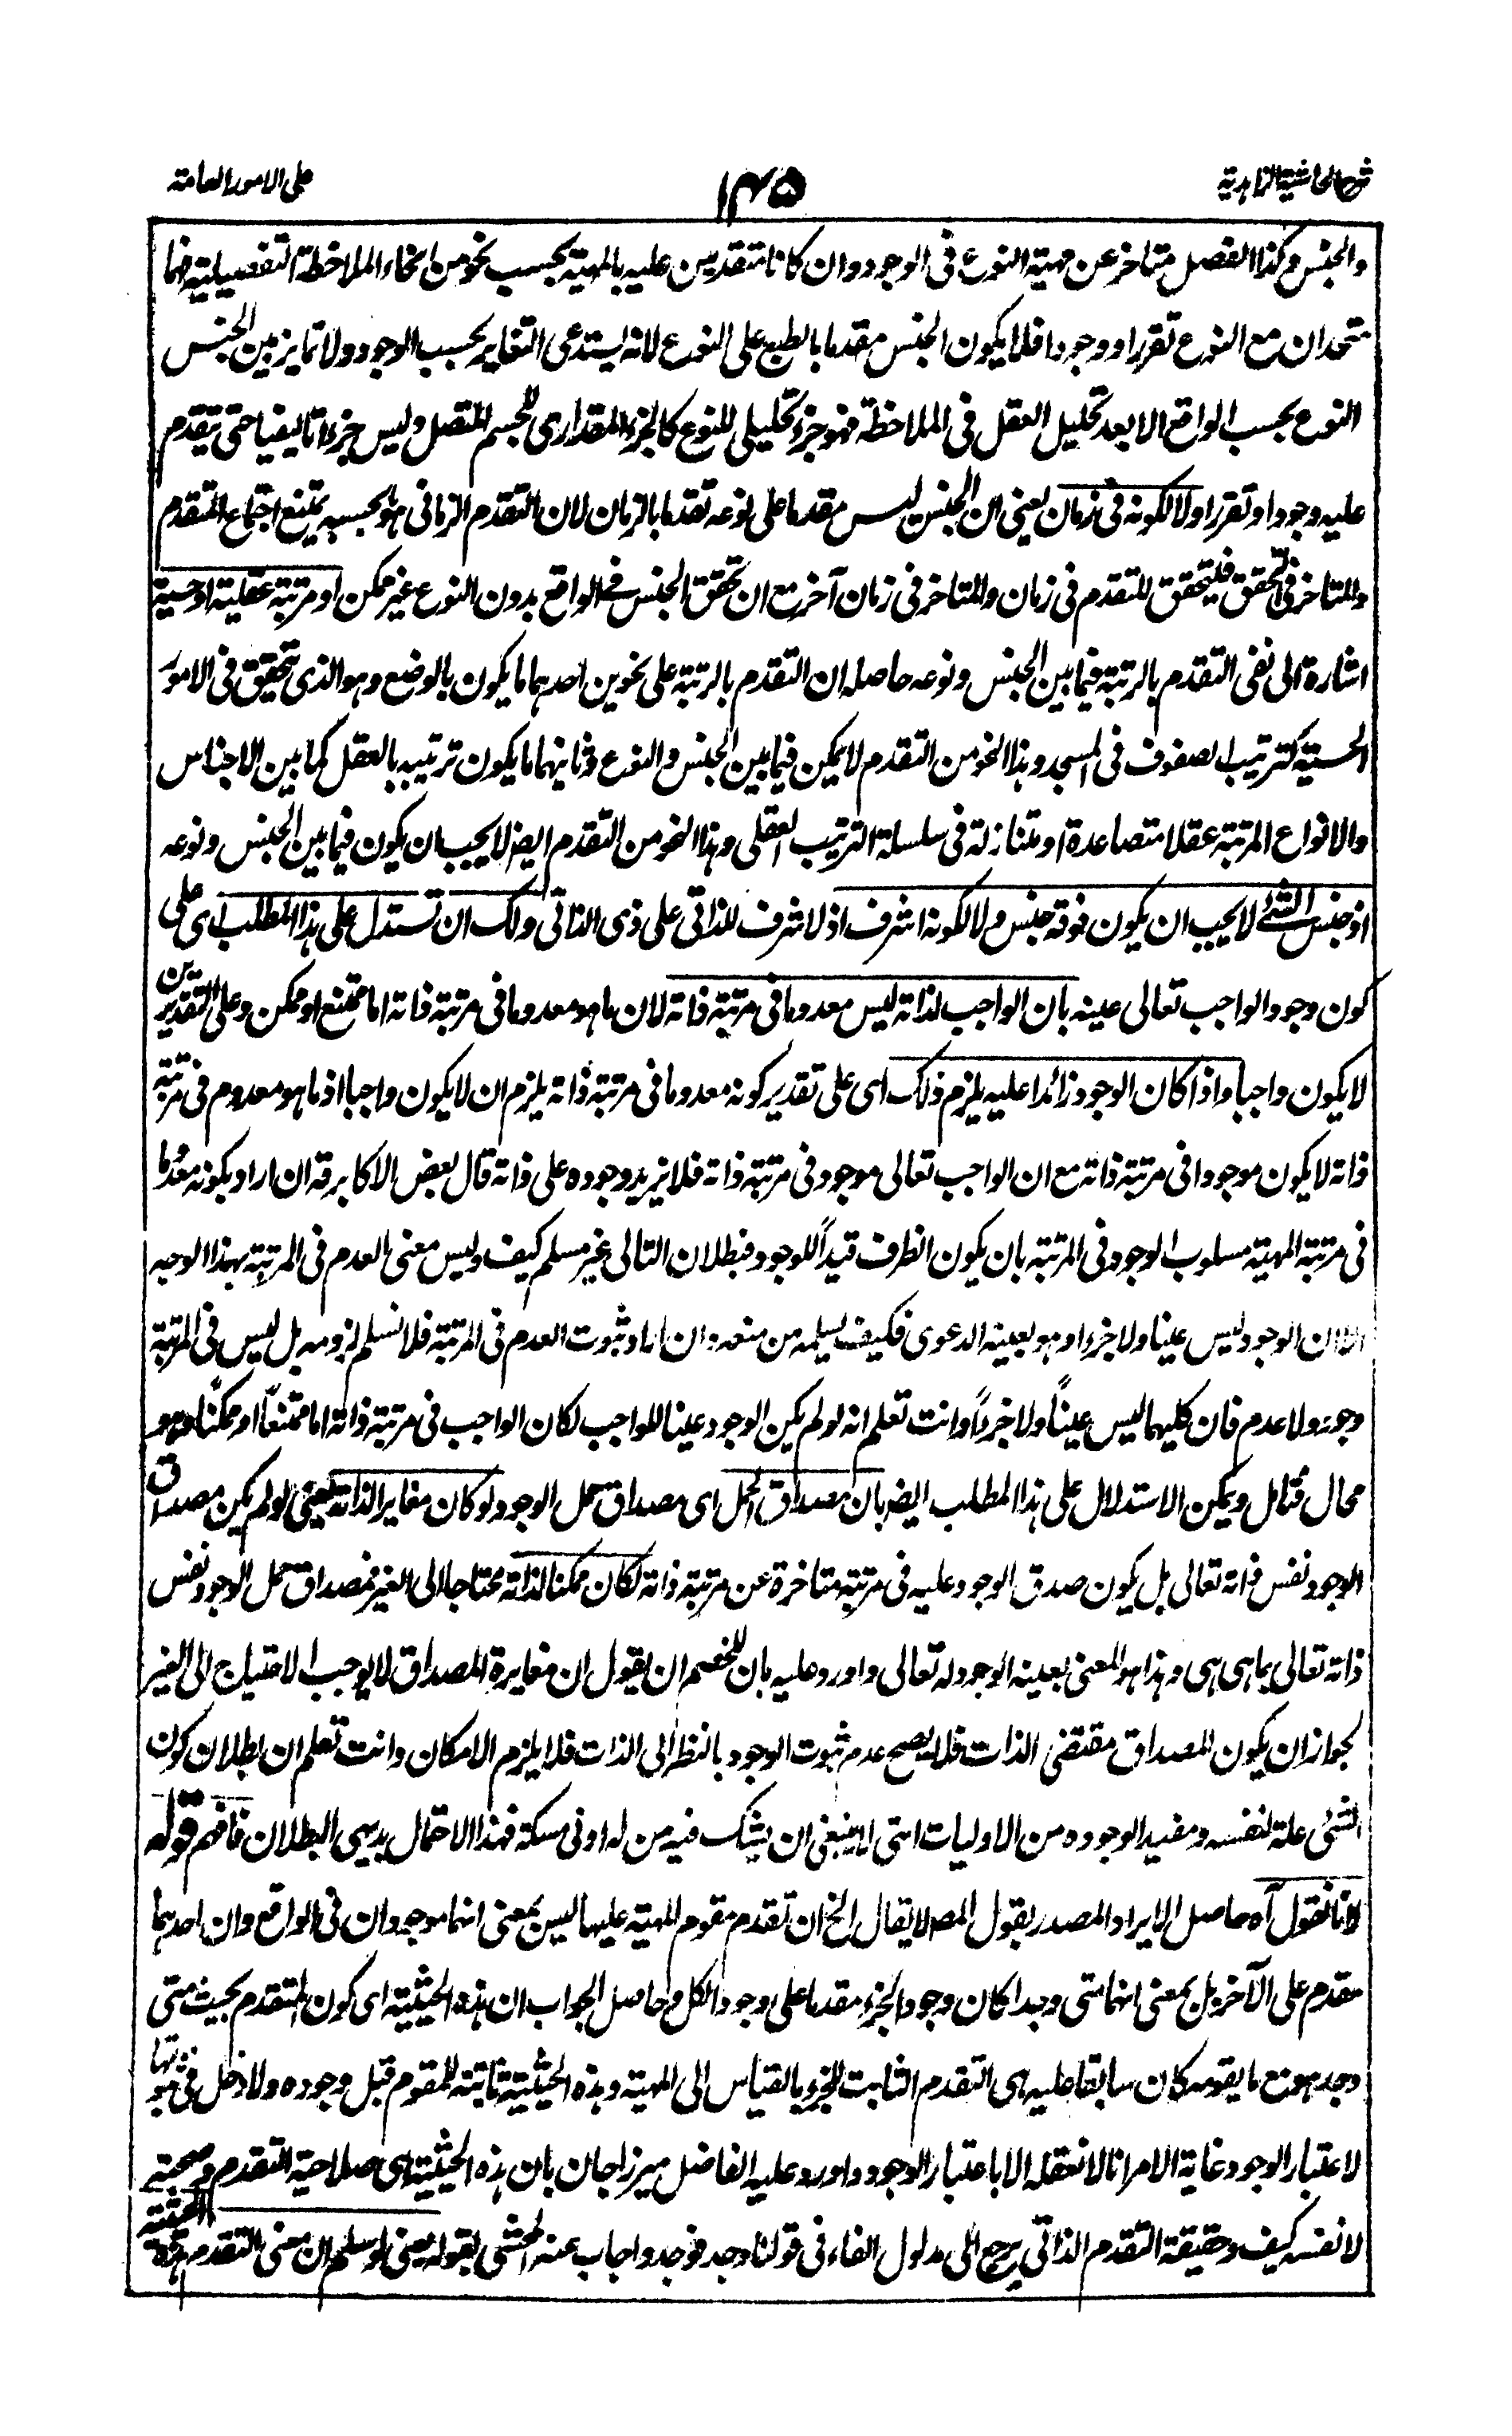 شرح الحاشية الزاهدية
١٤٥
على الامور العامة
والجنس وكذا الفصل متاخر عن مهية النوع فى الوجود وان كانا متقدمين عليه بالمهية بحسب نحو من انحاء الملاحظة التفصيلية فهما
متحدان مع النوع تقررا ووجودا فلا يكون الجنس مقدما بالطبع على النوع لانه يستدعى التغاير بحسب الوجود ولا تمايز بين الجنس
النوع بحسب الواقع الا بعد تحليل العقل فى الملاحظة فهو جزء تحليلى للنوع كالجزء المقدارى للجسم المتصل وليس جزءا تاليفيا حتى يتقدم
عليه وجودا وتقررا ولا لكونه فى زمان يعنى ان الجنس ليس مقدما على نوعه تقدما بالزمان لان التقدم الزمانى ما بحسبه يمتنع اجتماع المتقدم
والمتاخر فى التحقق فيتحقق المتقدم فى زمان والمتاخر فى زمان آخر مع ان تحقق الجنس فى الواقع بدون النوع غير ممكن او مرتبة عقلية او حسية
اشارة الى نفى التقدم بالرتبة فيما بين الجنس ونوعه حاصله ان التقدم بالرتبة على نحوين احدهما ما يكون بالوضع وهو الذى يتحقق فى الامور
الحسية كترتيب الصفوف فى المسجد وهذا النحو من التقدم لا يمكن فيما بين الجنس والنوع وثانيهما ما يكون ترتيبه بالعقل كما بين الاجناس
والانواع المرتبة عقلا متصاعدة او متنازلة فى سلسلة الترتيب العقلى وهذا النحو من التقدم ايضا لا يجب ان يكون فيما بين الجنس ونوعه
اذ جنس الشئ لا يجب ان يكون فوقه جنس ولا لكونه اشرف اذ لا شرف للذاتى على ذى الذاتى ولك ان تستدل على هذا المطلب اى على
كون وجود الواجب تعالى عينه بان الواجب لذاته ليس معدوما فى مرتبة ذاته لان ما هو معدوما فى مرتبة ذاته اما ممتنع او ممكن وعلى التقديرين
لا يكون واجبا واذا كان الوجود زائدا عليه يلزم ذلك اى على تقدير كونه معدوما فى مرتبة ذاته يلزم ان لا يكون واجبا اذ ما هو معدوم فى مرتبة
ذاته لا يكون موجودا فى مرتبة ذاته مع ان الواجب تعالى موجود فى مرتبة ذاته فلا يزيد وجوده على ذاته قال بعض الاكابر قد ان اراد بكونه معدوما
فى مرتبة المهية مسلوب الوجود فى المرتبة بان يكون الظرف قيداً للوجود فبطلان التالى غير مسلم كيف وليس معنى العدم فى المرتبة بهذا الوجه
الا ان الوجود ليس عينا ولا جزءا وهو بعينه الدعوى فكيف يسلمه من منعه وان اراد ثبوت العدم فى المرتبة فلا نسلم لزومه بل ليس فى المرتبة
وجود ولا عدم فان كليهما ليس عيناً ولا جزءاً وانت تعلم انه لو لم يكن الوجود عينا للواجب لكان الواجب فى مرتبة ذاته اما ممتنعاً او ممكناً وهو
محال فتامل ويمكن الاستدلال على هذا المطلب ايضا بان مصداق الحمل اى مصداق حمل الوجود لو كان مغايرا لذاته يعنى لو لم يكن مصداق
الوجود نفس ذاته تعالى بل يكون صدق الوجود عليه فى مرتبة متاخرة عن مرتبة ذاته لكان ممكنا لذاته محتاجا الى الغير فمصداق حمل الوجود نفس
ذاته تعالى بما هى هى وهذا هو المعنى بعينه الوجود له تعالى واورد عليه بان للخصم ان يقول ان مغايرة المصداق لا يوجب الاحتياج الى الغير
لجواز ان يكون المصداق مقتضى الذات فلا يصح عدم ثبوت الوجود بالنظر الى الذات فلا يلزم الامكان وانت تعلم ان بطلان كون
الشئ علة لنفسه ومفيدا لوجوده من الاوليات التى لا ينبغى ان يشك فيه من له ادنى مسكة فهذا الاحتمال بديهى البطلان فافهم قوله
لانا نقول آه حاصل الايراد المصدر بقول المصـ لا يقال الخ ان تقدم مقوم المهية عليها ليس بمعنى انهما موجودان فى الواقع وان احدهما
مقدم على الآخر بل بمعنى انهما متى وجدا كان وجود الجزء مقدما على وجود الكل وحاصل الجواب ان هذه الحيثية اى كون المتقدم بحيث متى
وجد هو مع ما يقومه كان سابقا عليه هى التقدم الثابت للجزء بالقياس الى المهية وهذه الحيثية ثابتة للمقوم قبل وجوده ولا دخل فى ثبوتها
لاعتبار الوجود غاية الامر انا لا نعقله الا باعتبار الوجود واورد عليه الفاضل ميرزا جان بان هذه الحيثية هى صلاحية التقدم وصحته
لا نفسه كيف وحقيقة التقدم الذاتى يرجع الى مدلول الفاء فى قولنا وجد فوجد واجاب عنه المحشى بقوله يعنى لو سلم ان معنى التقدم هذه الحيثية